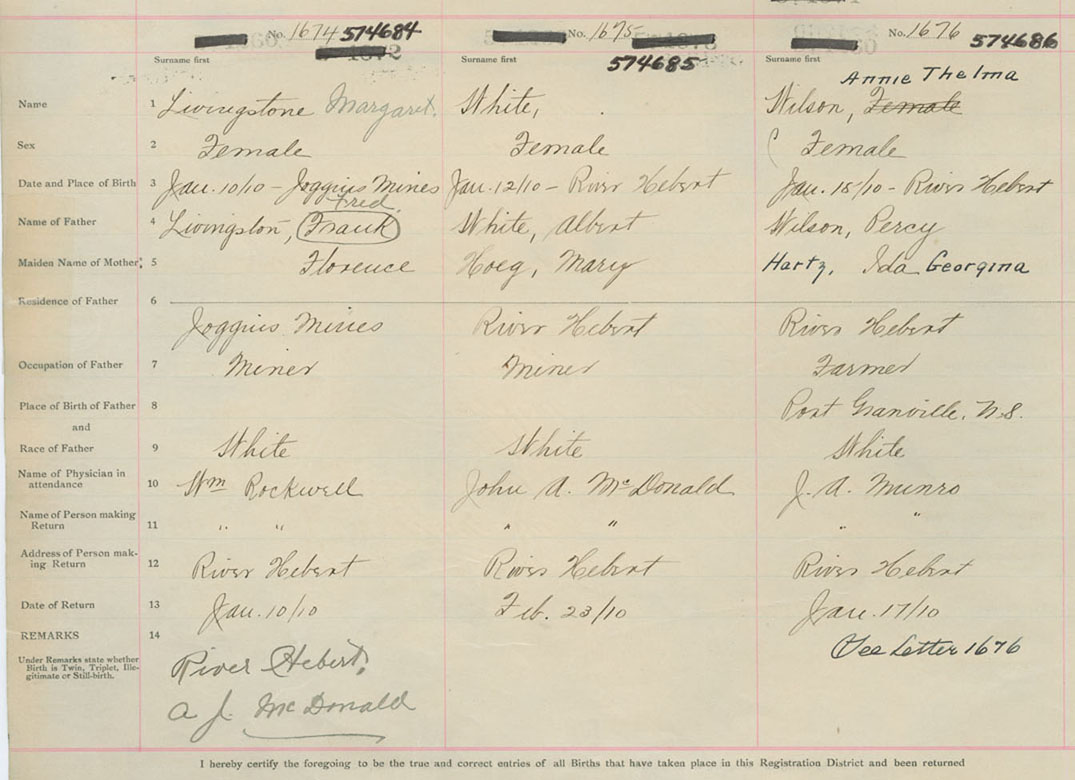 No. 1674 574684 No. 1675 No. 1676 574686
Surname first Surname first 574685 Surname first
Annie Thelma
Name 1 Livingstone Margaret. White, Wilson, Female
Sex 2 Female Female Female
Date and Place of Birth 3 Jan. 10/10 - Joggins Mines Jan. 12/10 - River Hebert Jan. 15/10 - River Hebert
Fred
Name of Father 4 Livingston, Frank White, Albert Wilson, Percy
Maiden Name of Mother 5 Florence Hoeg, Mary Hartz, Ida Georgina
Residence of Father 6
Joggins Mines River Hebert River Hebert
Occupation of Father 7 Miner Miner Farmer
Place of Birth of Father 8 Port Granville, N.S.
and
Race of Father 9 White White White
Name of Physician in
attendance 10 Wm Rockwell John A. McDonald J. A. Munro
Name of Person making
Return 11 " " " " " "
Address of Person mak-
ing Return 12 River Hebert River Hebert River Hebert
Date of Return 13 Jan. 10/10 Feb. 23/10 Jan. 17/10
REMARKS 14 See Letter 1676
Under Remarks state whether
Birth is Twin, Triplet, Ille-
gitimate or Still-birth.
River Hebert.
A J. McDonald
I hereby certify the foregoing to be the true and correct entries of all Births that have taken place in this Registration District and been returned